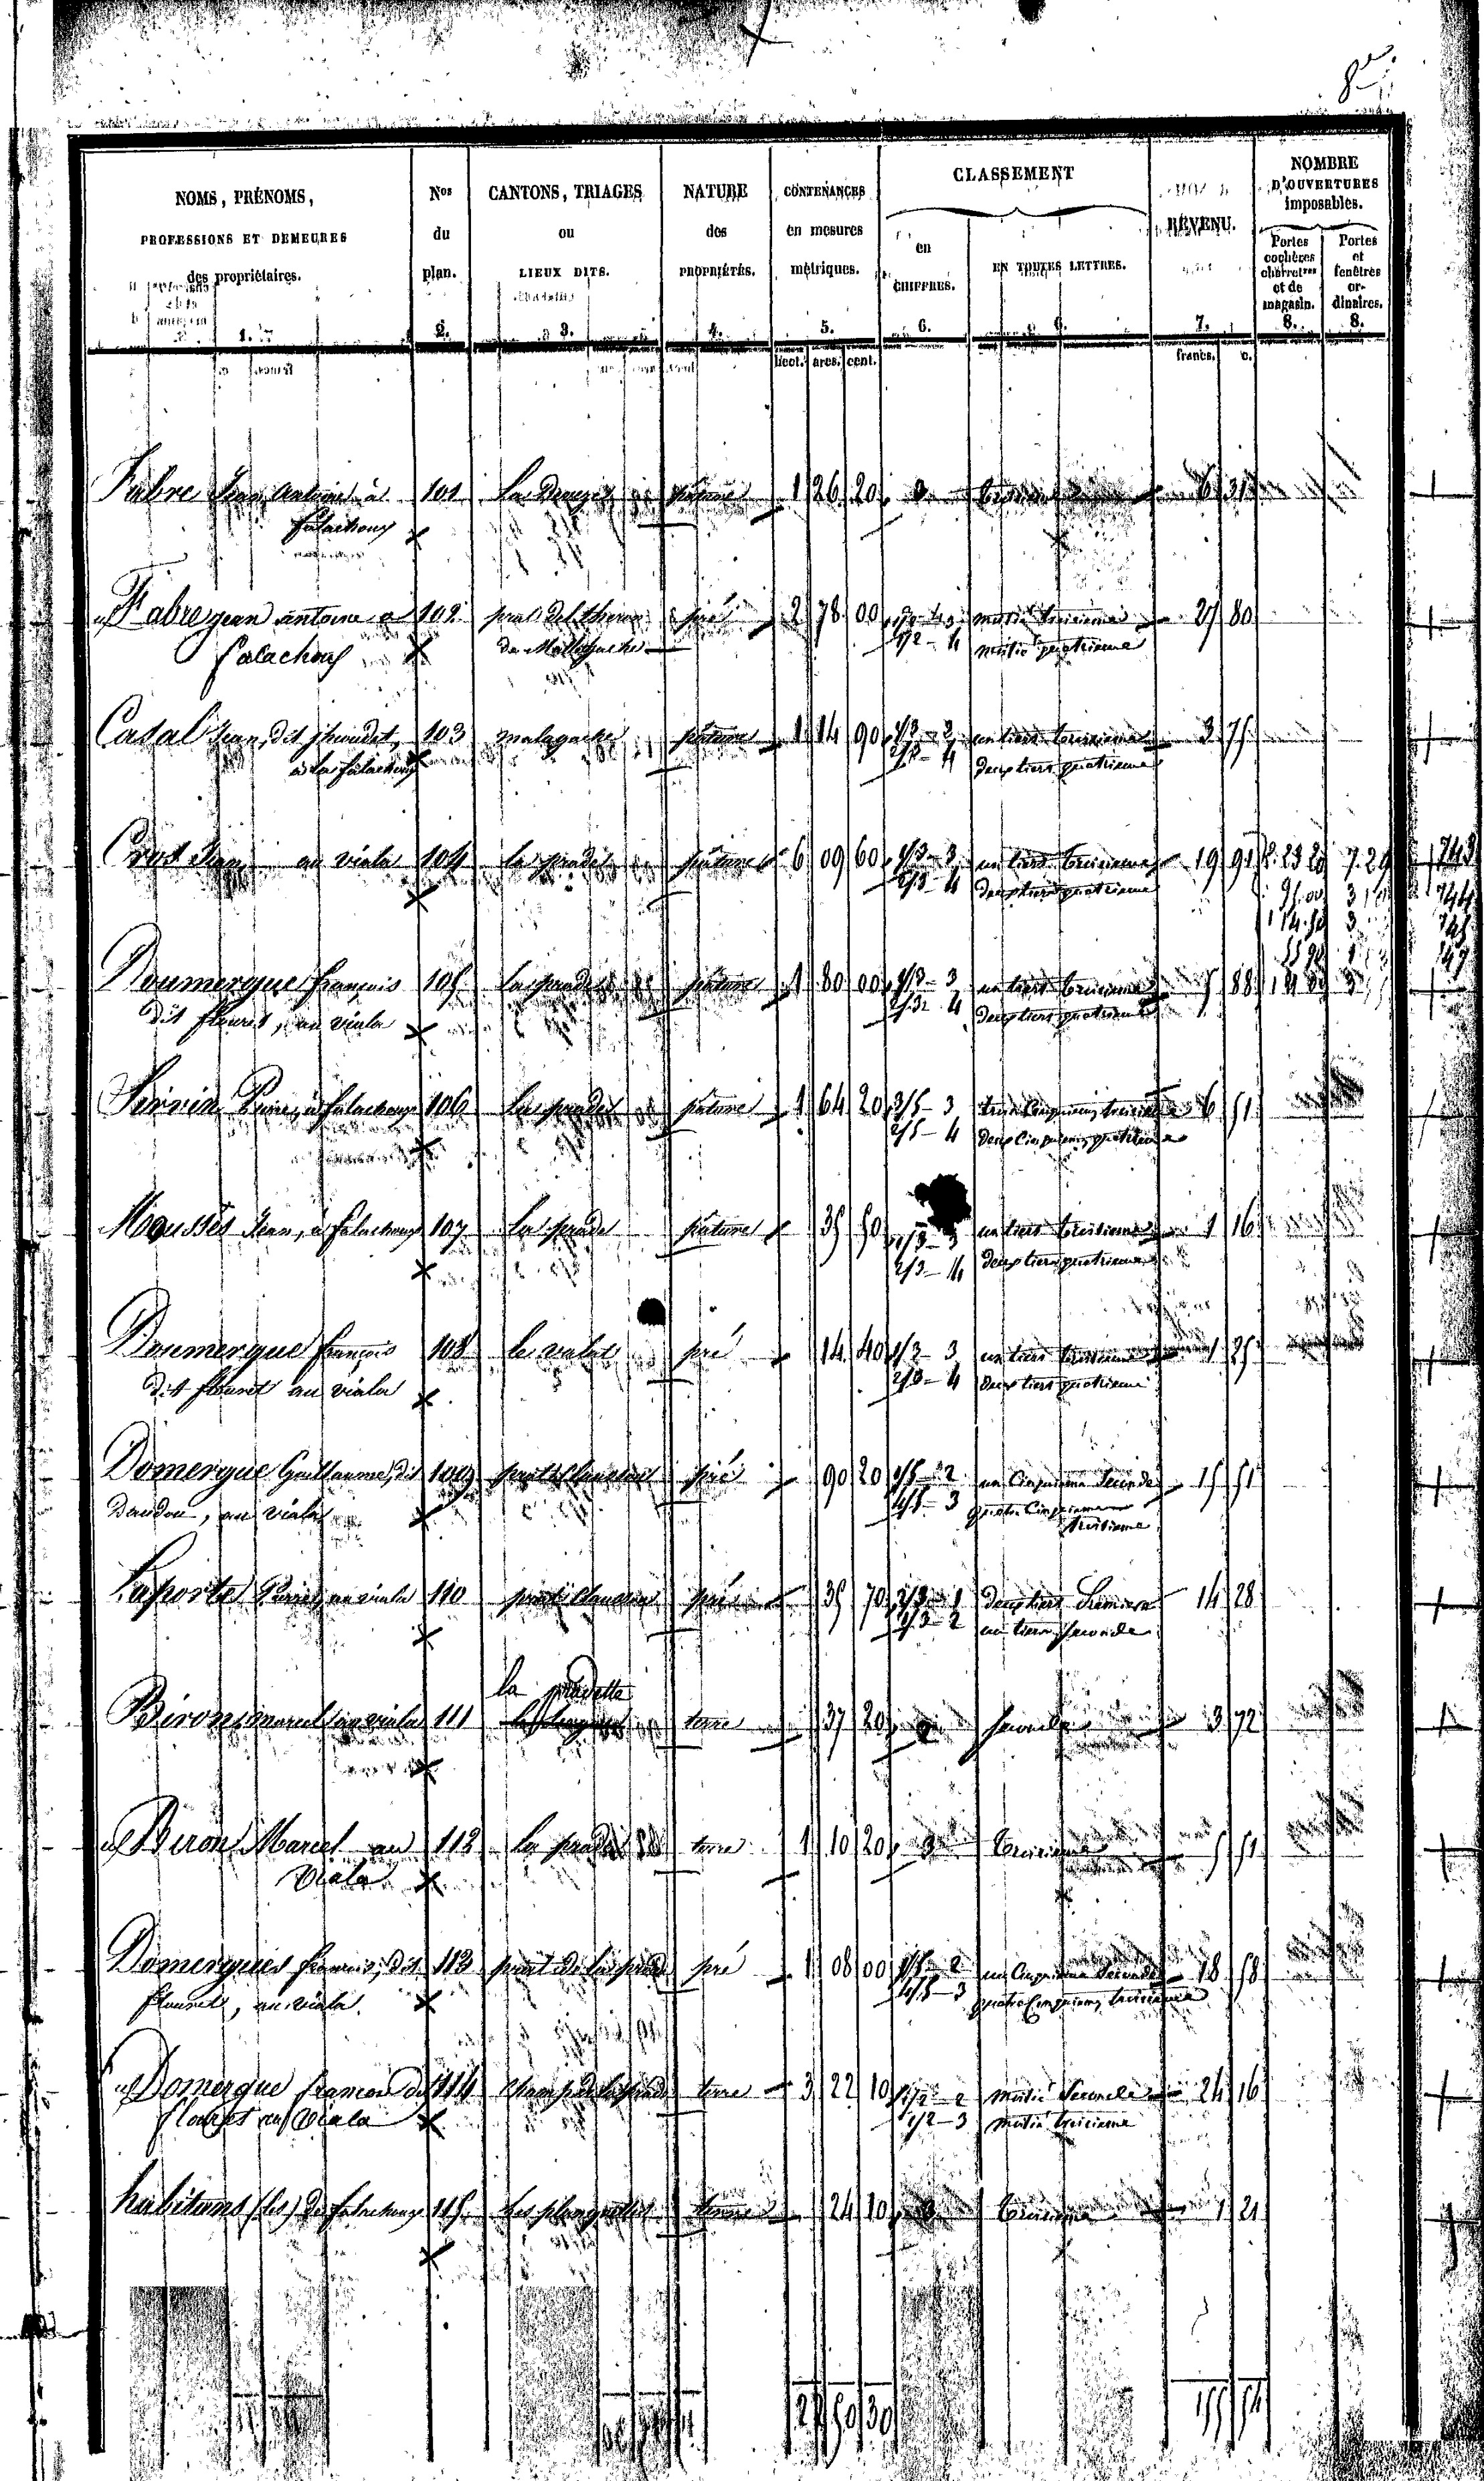 8
NOMS, PRÉNOMS,
PROFESSIONS ET DEMEURES
des propriétaires.
1.
Nos
du
plan.
2.
CANTONS, TRIAGES
ou
LIEUX DITS.
3.
NATURE
des
PROPRIÉTÉS.
4.
CONTENANCES
en mesures
métriques.
5.
CLASSEMENT
en
CHIFFRES.
6.
EN TOUTES LETTRES.
6.
REVENU.
7.
NOMBRE
D'OUVERTURES
imposables.
Portes
cochères
charretres
et de
magasin.
8.
Portes
et
fenêtres
or-
dinaires.
8.
hect. ares. cent. francs. c.
Fabre Jean Antoine à 101 pature 1 26 20 3 troisieme 6 31
falachoux
Fabre jean antoine a 102 prat del theron pré 2 78 00 1/2 - 3 moitié troisieme 27 80
falachoux de Mallegache 1/2 - 4 moitié quatrieme
Casal Jean, dit jhoudet, 103 malagache pature 1 14 90 1/3 - 3 un tiers troisieme 3 75
à la falachoux 2/3 - 4 deux tiers quatrieme
Cros Jean au viala 104 la prade pature 6 09 60 1/3 - 3 un tiers troisieme 19 91 7.29 743
2/3 - 4 deux tiers quatrieme 744
Doumergue françois 105 la prade pature 1 80 00 1/3 - 3 un tiers troisieme 5 88
dit flouret, au viala 2/3 - 4 deux tiers quatrieme
Sirvin Pierre, à falachoux 106 la prade pature 1 64 20 3/5 - 3 trois cinquiemes troisieme 6 51
2/5 - 4 deux cinquiemes quatrieme
Moussès Jean, à falachoux 107 la prade pature 35 50 1/3 - 3 un tiers troisieme 1 16
2/3 - 4 deux tiers quatrieme
Doumergue françois 108 le valat pré 14 40 1/3 - 3 un tiers troisieme 1 25
dit flouret au viala 2/3 - 4 deux tiers quatrieme
Domergue Guillaume, dit 109 pré 90 20 1/5 - 2 un cinquieme seconde 15 51
daudou, au viala 4/5 - 3 quatre cinquiemes
troisieme
Laporte Pierre, au viala 110 pré 35 70 2/3 - 1 deux tiers premiere 14 28
1/3 - 2 un tiers seconde
la pradette
Biron marcel au viala 111 terre 37 20 2 seconde 3 72
Biron Marcel au 112 la prade terre 1 10 20 3 troisieme 5 51
Viala
Domergue françois, dit 113 prat de la prade pré 1 08 00 1/5 - 2 un cinquieme seconde 18 58
flouret, au viala 4/5 - 3 quatre cinquiemes troisieme
Domergue françois dit 114 champ de la prade terre 3 22 10 1/2 - 2 moitié seconde 24 16
flouret au Viala 1/2 - 3 moitié troisieme
habitans (les) de falachoux 115 les planquettes terre 24 10 3 troisieme 1 21
50 30